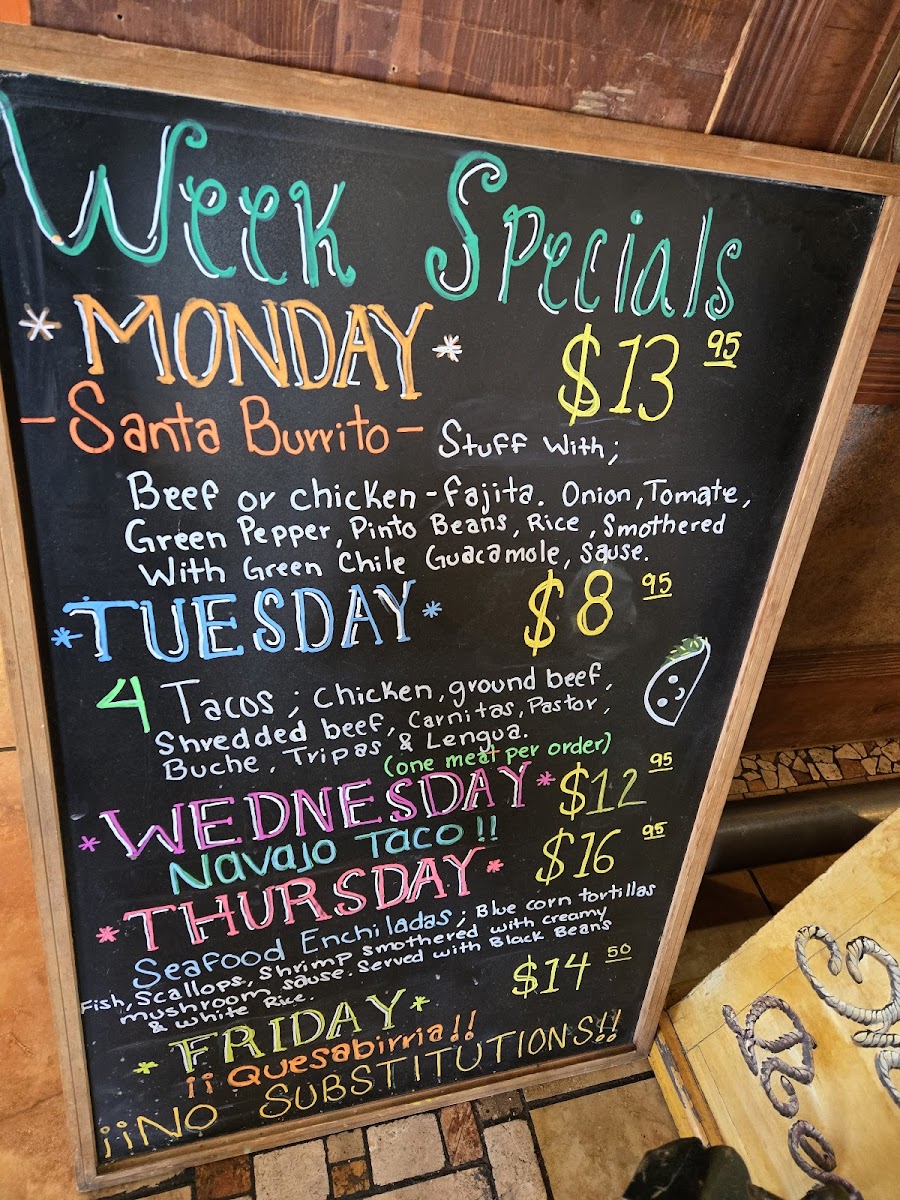 Week Specials
*MONDAY* $13 95
-Santa Burrito- Stuff With;
Beef or chicken-fajita. Onion, Tomate,
Green Pepper, Pinto Beans, Rice, Smothered
With Green Chile Guacamole, sause.
*TUESDAY* $8 95
4 Tacos; Chicken, ground beef,
Shredded beef, Carnitas, Pastor,
Buche, Tripas & Lengua.
(one meat per order)
*WEDNESDAY* $12 95
Navajo Taco!!
*THURSDAY* $16 95
Seafood Enchiladas; Blue corn tortillas
Fish, Scallops, Shrimp smothered with creamy
mushroom sause. Served with Black Beans
& White Rice.
*FRIDAY* $14 50
¡¡Quesabirria!!
¡¡NO SUBSTITUTIONS!!